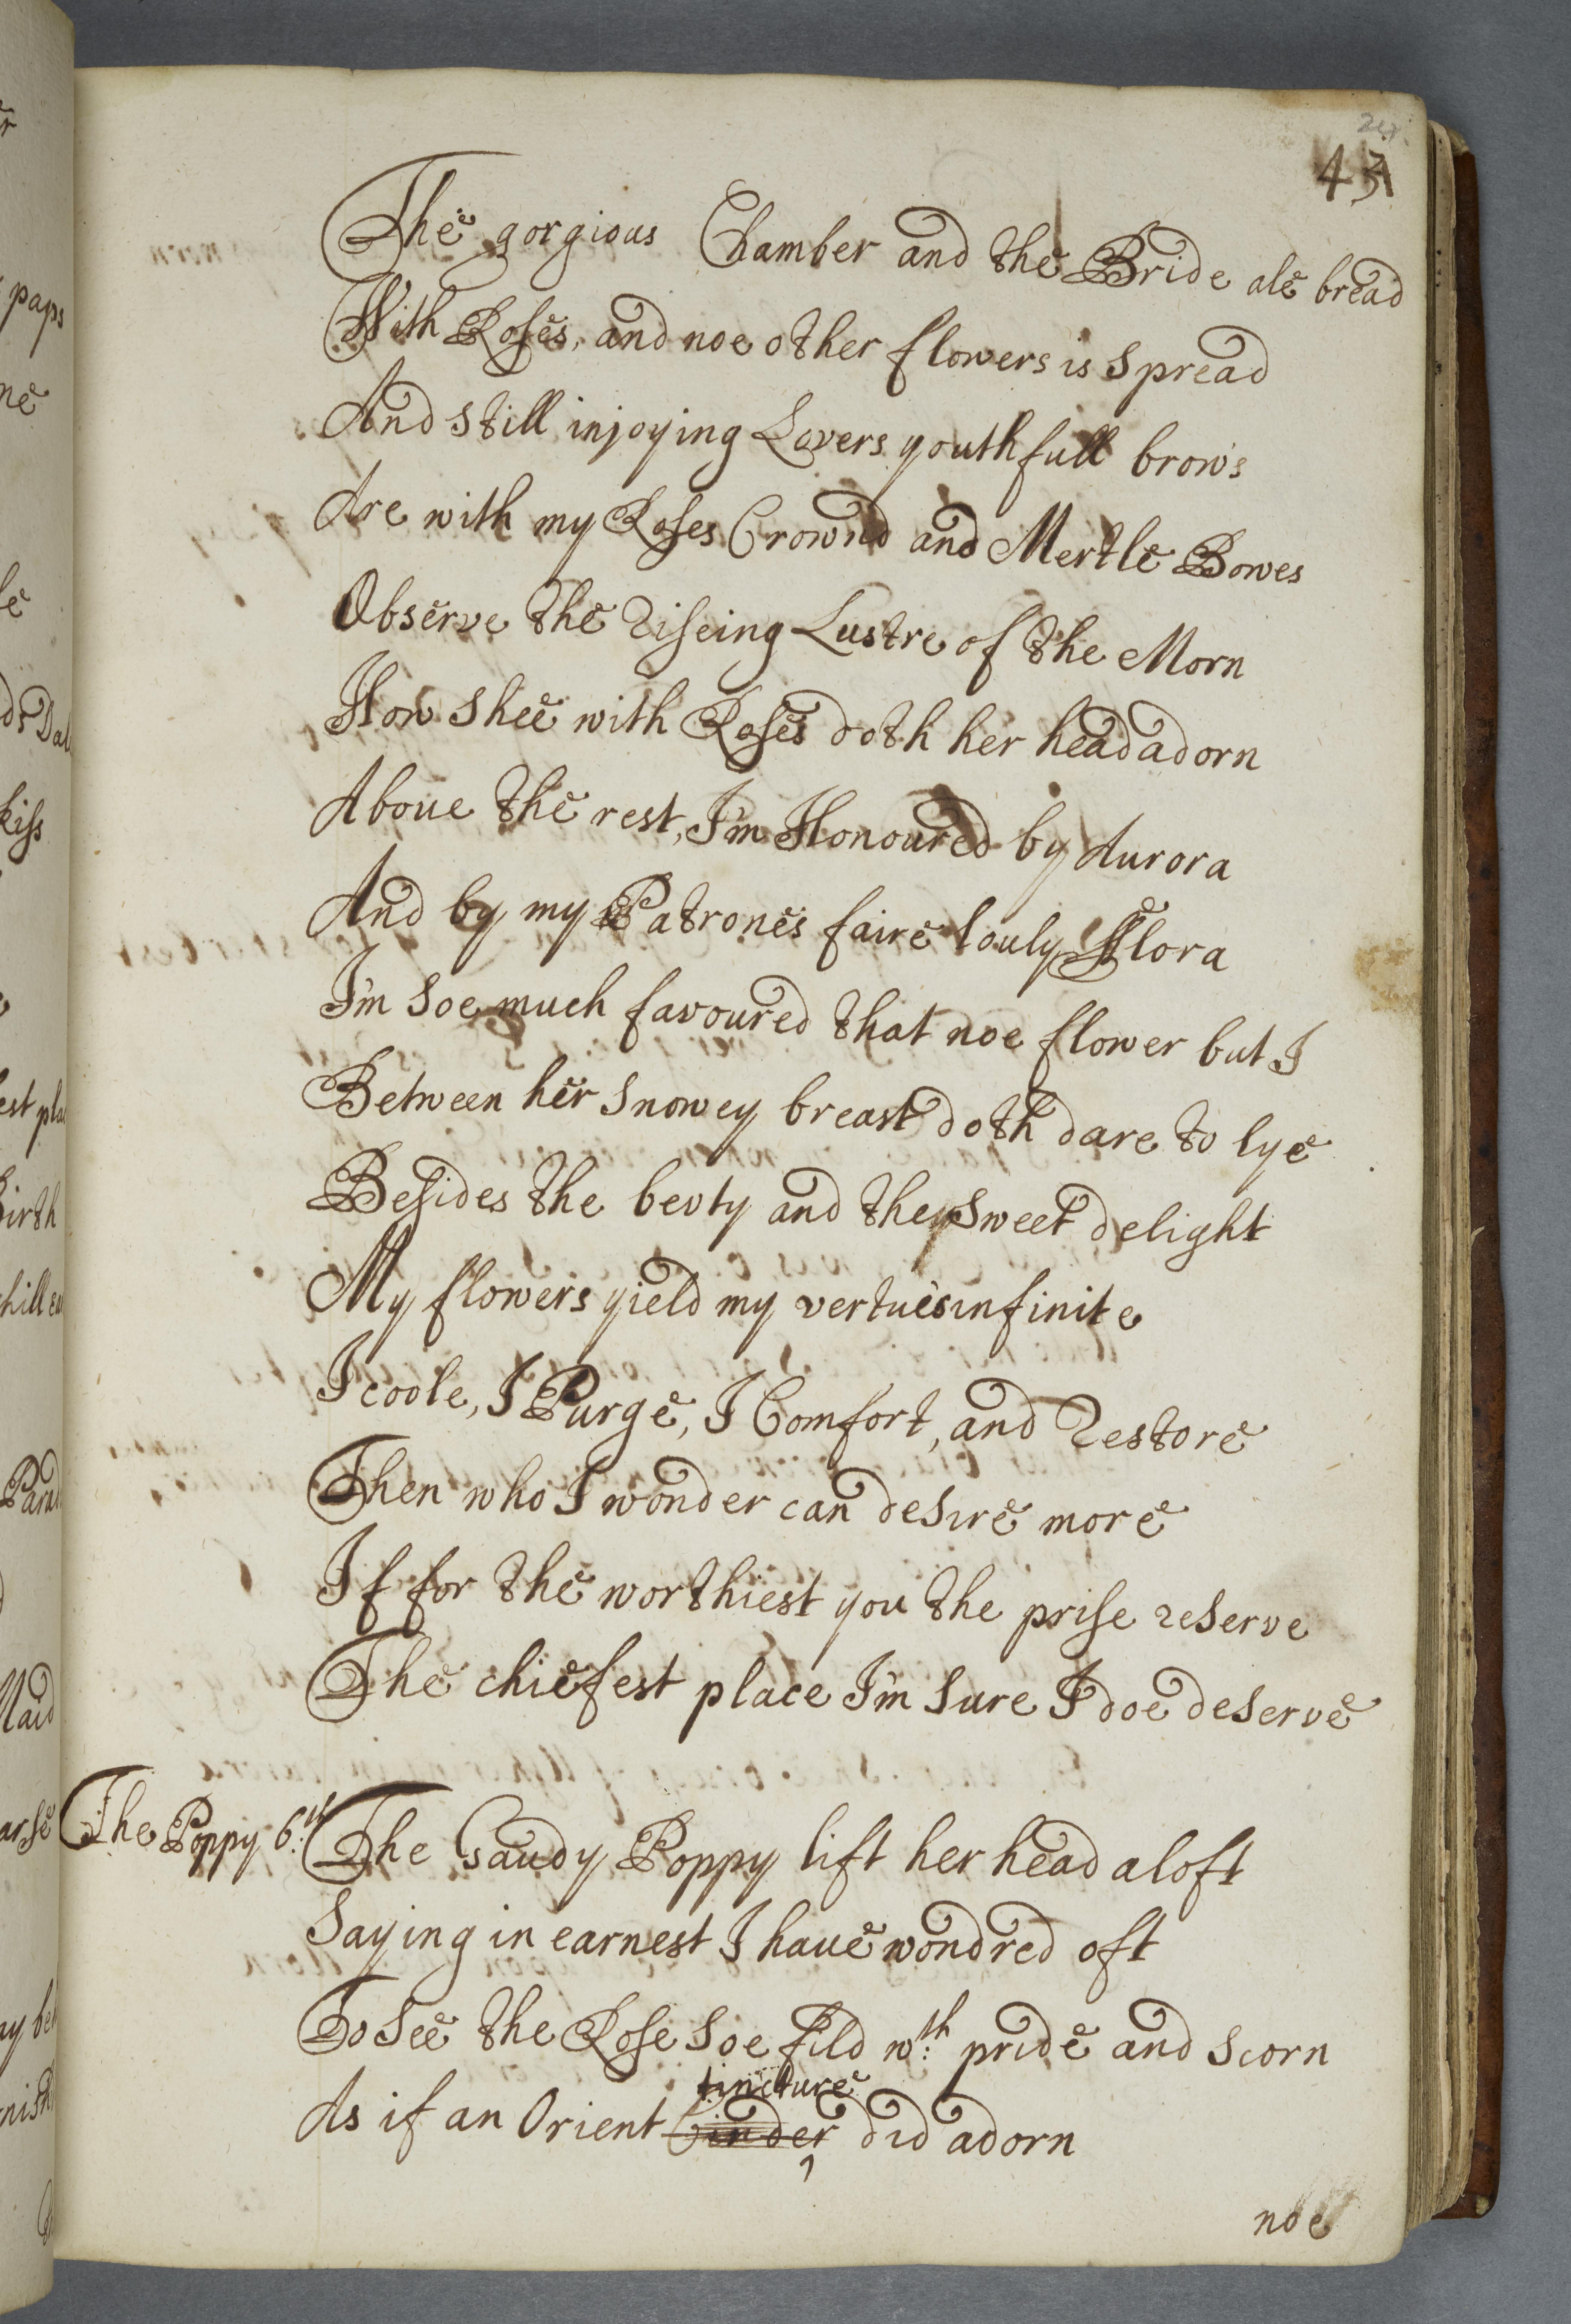 43
The gorgious Chamber and the Bride ale bread
With Roses, and noe other flowers is spread
And still injoying Lovers youthfull brows
Are with my Roses Crownd and Mertle Bowes
Observe the riseing Lustre of the Morn
How shee with Roses doth her head adorn
Aboue the rest, I'm Honoured by Aurora
And by my Patrones faire louly Flora
I'm soe much favoured that noe flower but I
Between her snowey breast doth dare to lye
Besides the bevty and the sweet delight
My flowers yield my vertues infinite
I coole, I Purge, I Comfort, and restore
Then who I wonder can desire more
If for the worthiest you the prise reserve
The chiefest place I'm sure I doe deserve
The Poppy 6th
The Gaudy Poppy lift her head aloft
Saying in earnest I haue wondred oft
To see the Rose soe fild wth pride and scorn
tincture
As if an Orient Cinder did adorn
noe